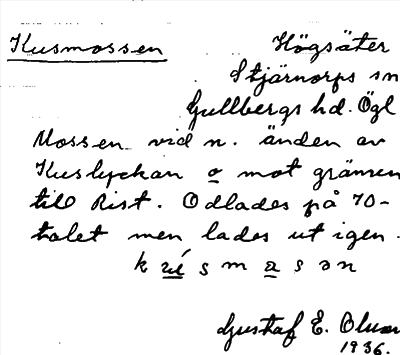 Kusmossen
Högsäter
Stjärnorps sn
Gullbergs hd. Ögl
Mossen vid n. änden av
Kuslyckan o mot gränsen
till Rist. Odlades på 70-
talet men lades ut igen.
Gustaf E.
1936.